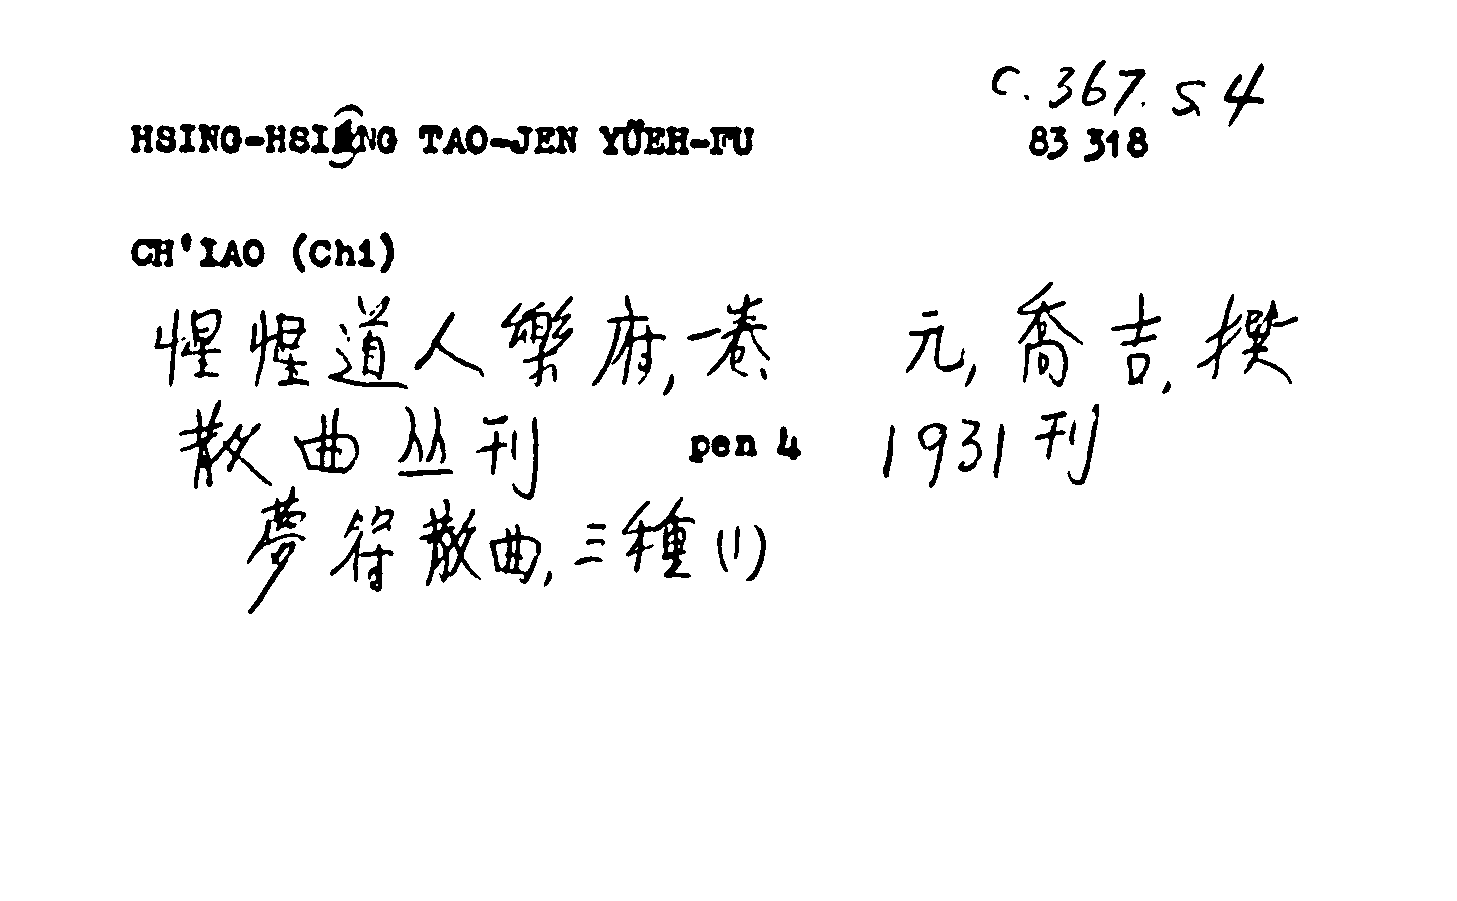 C. 367. S. 4
HSING-HSING TAO-JEN YÜEH-FU 83 318
CH'IAO (Chi)
惺惺道人樂府,一卷 元,喬吉,撰
散曲丛刊 pen 4 1931刊
夢符散曲,三種(1)